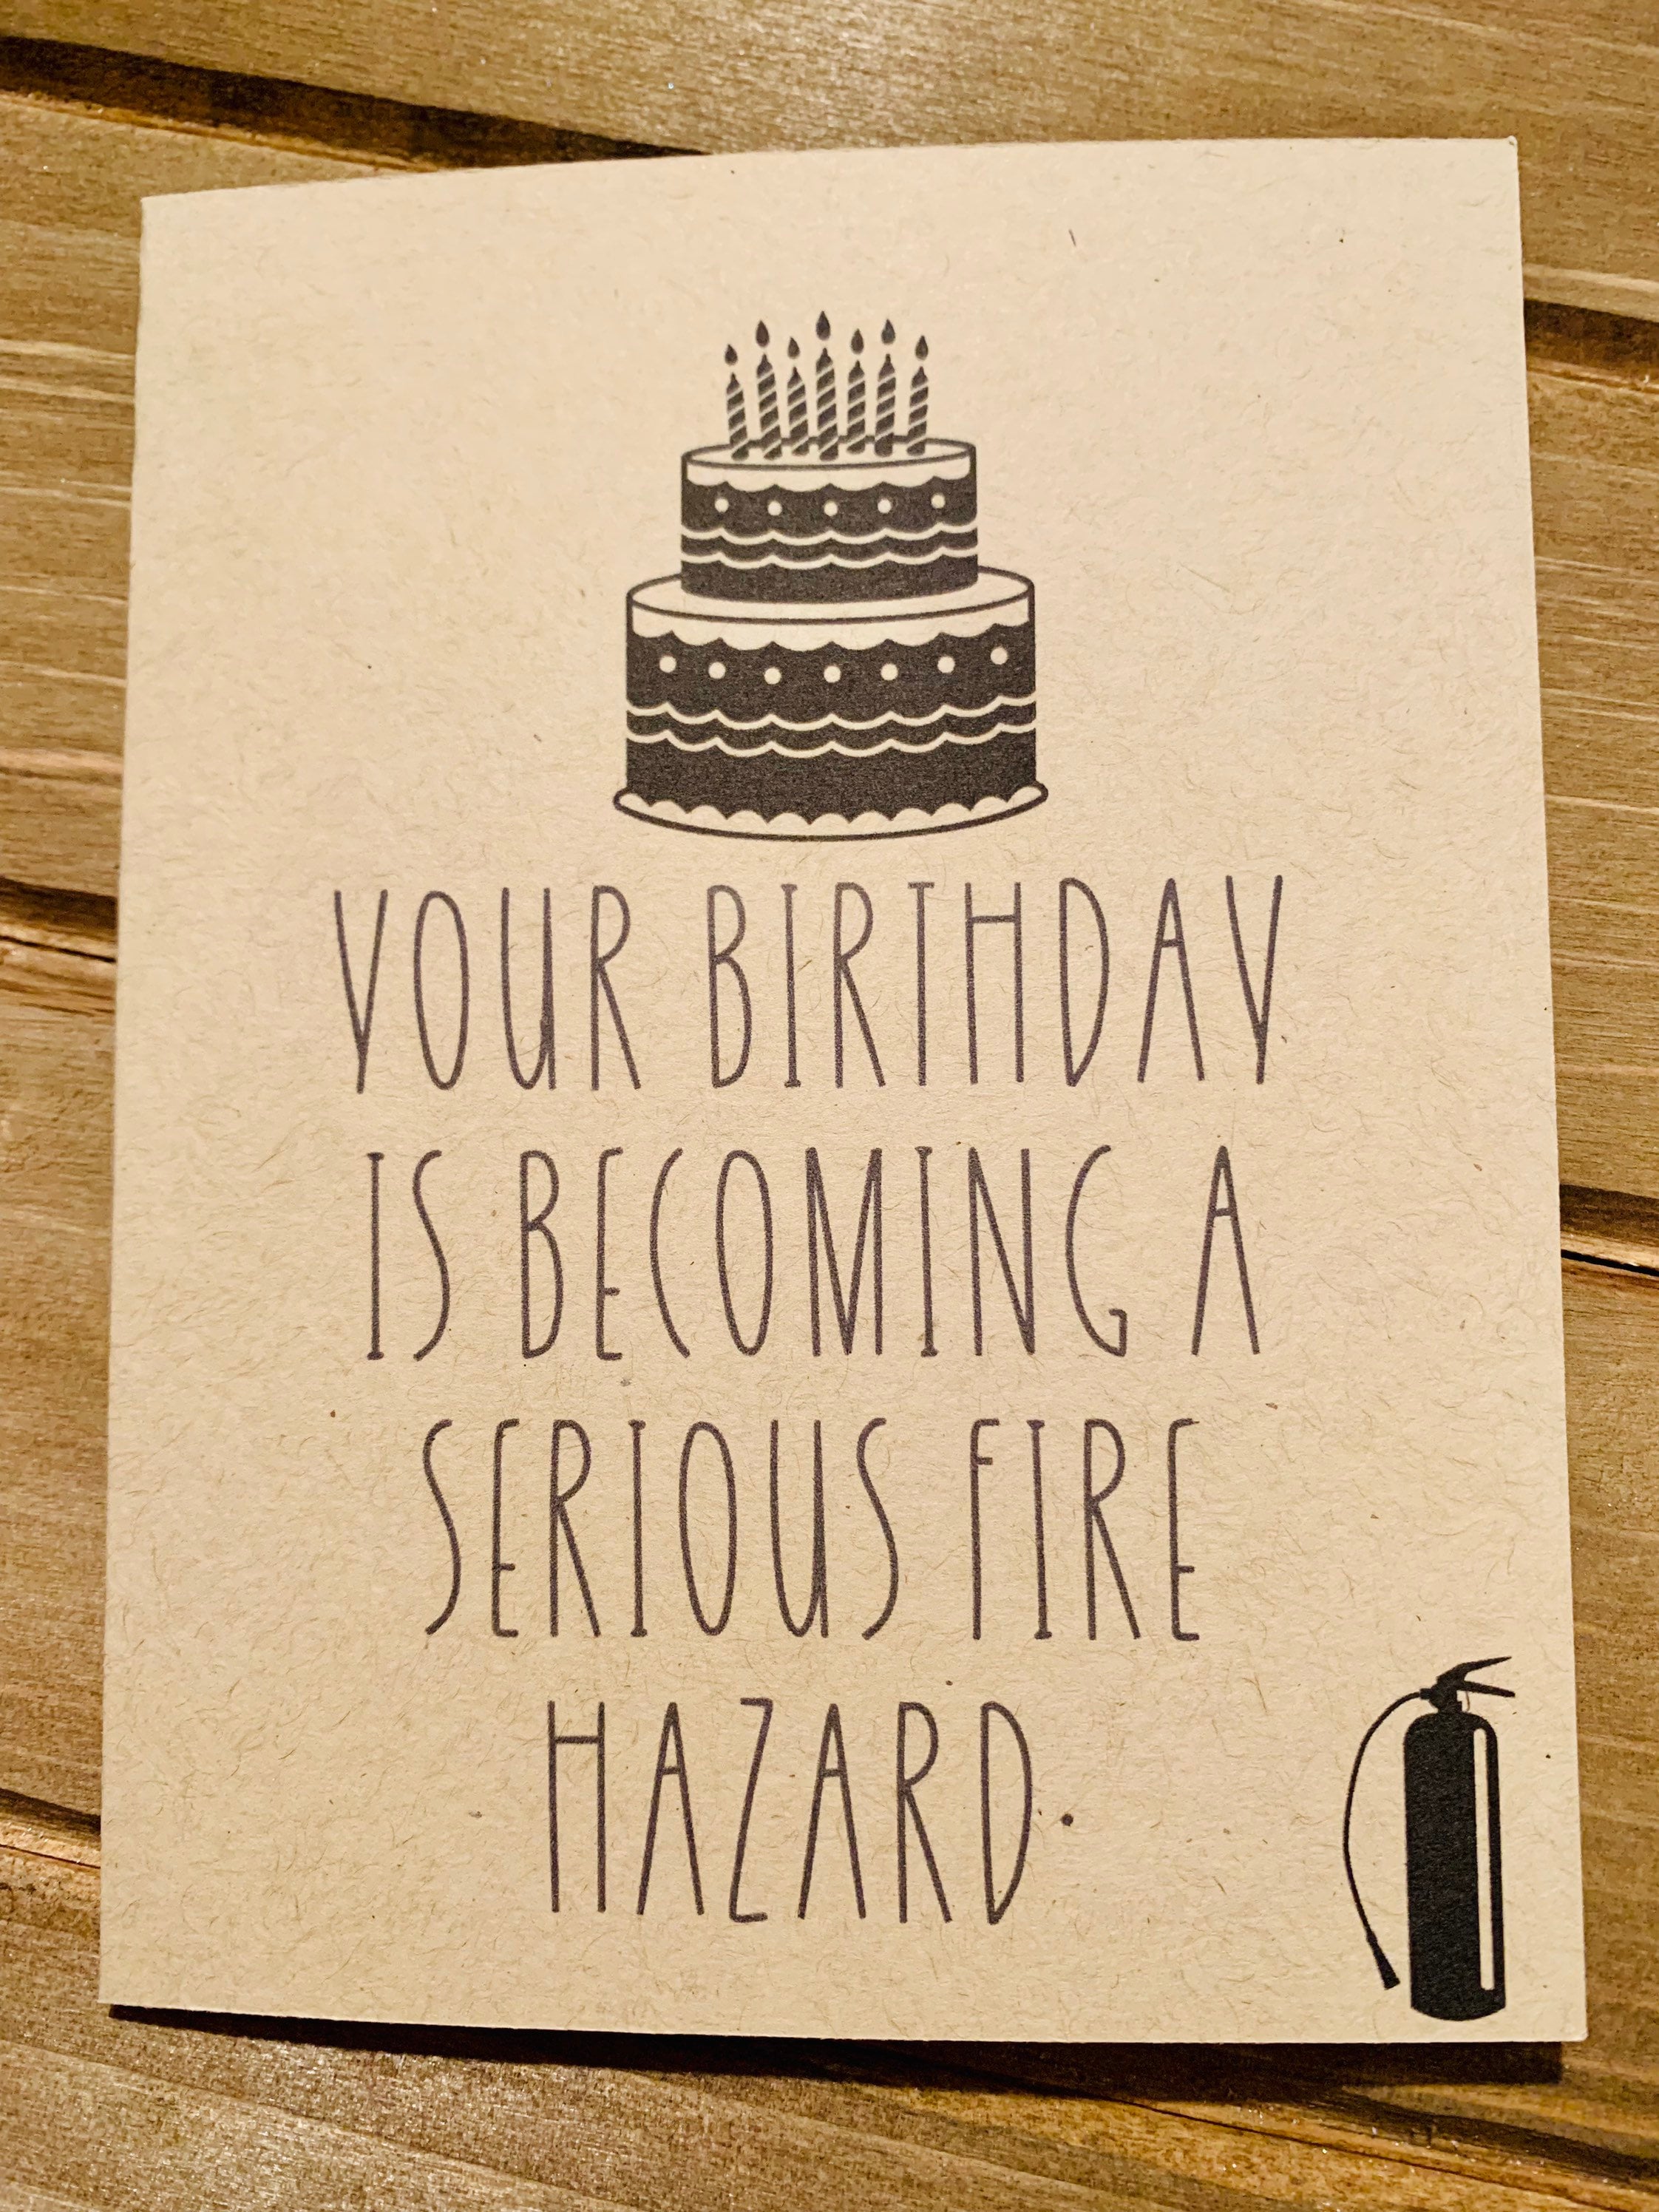 YOUR BIRTHDAY
IS BECOMING A
SERIOUS FIRE
HAZARD